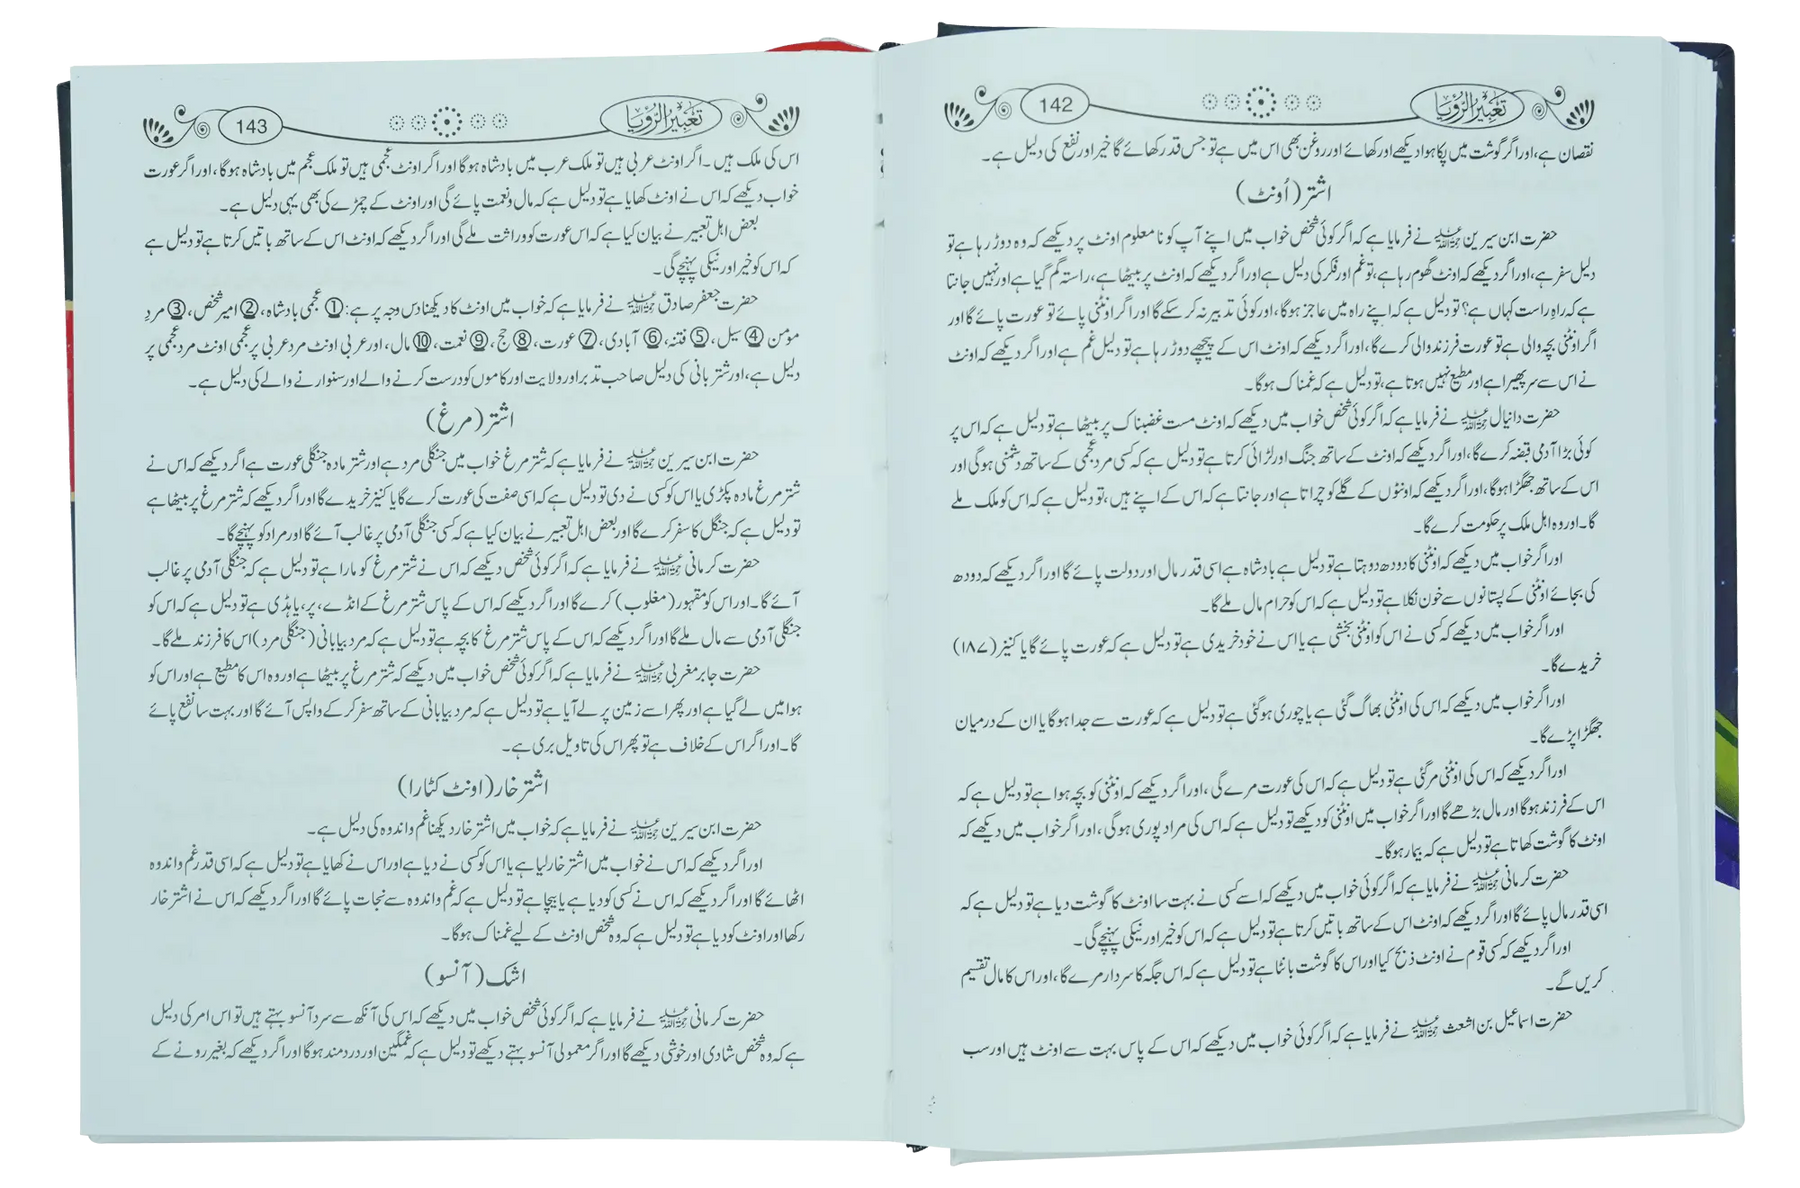 142
تعبیر الرؤیا
نقصان ہے، اور اگر گوشت میں پکا ہوا دیکھے اور کھائے اور روغن بھی اس میں ہے تو جس قدر کھائے گا خیر اور نفع کی دلیل ہے۔
اشتر (اُونٹ)
حضرت ابن سیرین رحمۃ اللہ علیہ نے فرمایا ہے کہ اگر کوئی شخص خواب میں اپنے آپ کو نا معلوم اونٹ پر دیکھے کہ وہ دوڑ رہا ہے تو
دلیل سفر ہے، اور اگر دیکھے کہ اونٹ گھوم رہا ہے، تو غم اور فکر کی دلیل ہے اور اگر دیکھے کہ اونٹ پر بیٹھا ہے، راستہ گم گیا ہے اور نہیں جانتا
ہے کہ راہِ راست کہاں ہے؟ تو دلیل ہے کہ اپنے راہ میں عاجز ہوگا، اور کوئی تدبیر نہ کر سکے گا اور اگر اونٹنی پائے تو عورت پائے گا اور
اگر اونٹنی بچہ والی ہے تو عورت فرزند والی کرے گا، اور اگر دیکھے کہ اونٹ اس کے پیچھے دوڑ رہا ہے تو دلیل غم ہے اور اگر دیکھے کہ اونٹ
نے اس سے سر پھیرا ہے اور مطیع نہیں ہوتا ہے، تو دلیل ہے کہ غمناک ہوگا۔
حضرت دانیال علیہ نے فرمایا ہے کہ اگر کوئی شخص خواب میں دیکھے کہ اونٹ مست غضبناک پر بیٹھا ہے تو دلیل ہے کہ اس پر
کوئی بڑا آدمی قبضہ کرے گا، اور اگر دیکھے کہ اونٹ کے ساتھ جنگ اور لڑائی کرتا ہے تو دلیل ہے کہ کسی مرد عجمی کے ساتھ دشمنی ہوگی اور
اس کے ساتھ جھگڑا ہوگا، اور اگر دیکھے کہ اونٹوں کے گلے کو چراتا ہے اور جانتا ہے کہ اس کے اپنے ہیں، تو دلیل ہے کہ اس کو ملک ملے
گا۔ اور وہ اہل ملک پر حکومت کرے گا۔
اور اگر خواب میں دیکھے کہ اونٹنی کا دودھ دوہتا ہے تو دلیل ہے بادشاہ ہے اسی قدر مال اور دولت پائے گا اور اگر دیکھے کہ دودھ
کی بجائے اونٹنی کے پستانوں سے خون نکلا ہے تو دلیل ہے کہ اس کو حرام مال ملے گا۔
اور اگر خواب میں دیکھے کہ کسی نے اس کو اونٹنی بخشی ہے یا اس نے خود خریدی ہے تو دلیل ہے کہ عورت پائے گا یا کنیز (۱۸۷)
خریدے گا۔
اور اگر خواب میں دیکھے کہ اس کی اونٹنی بھاگ گئی ہے یا چوری ہوگئی ہے تو دلیل ہے کہ عورت سے جدا ہوگا یا ان کے درمیان
جھگڑا پڑے گا۔
اور اگر دیکھے کہ اس کی اونٹنی مرگئی ہے تو دلیل ہے کہ اس کی عورت مرے گی، اور اگر دیکھے کہ اونٹنی کو بچہ ہوا ہے تو دلیل ہے کہ
اس کے فرزند ہوگا اور مال بڑھے گا اور اگر خواب میں اونٹنی کو دیکھے تو دلیل ہے کہ اس کی مراد پوری ہوگی، اور اگر خواب میں دیکھے کہ
اونٹ کا گوشت کھاتا ہے تو دلیل ہے کہ بیمار ہوگا۔
حضرت کرمانی رحمۃ اللہ علیہ نے فرمایا ہے کہ اگر کوئی خواب میں دیکھے کہ اسے کسی نے بہت سا اونٹ کا گوشت دیا ہے تو دلیل ہے کہ
اسی قدر مال پائے گا اور اگر دیکھے کہ اونٹ اس کے ساتھ باتیں کرتا ہے تو دلیل ہے کہ اس کو خیر اور نیکی پہنچے گی۔
اور اگر دیکھے کہ کسی قوم نے اونٹ ذبح کیا اور اس کا گوشت بانٹا ہے تو دلیل ہے کہ اس جگہ کا سردار مرے گا، اور اس کا مال تقسیم
کریں گے۔
حضرت اسماعیل بن اشعث رحمۃ اللہ علیہ نے فرمایا ہے کہ اگر کوئی خواب میں دیکھے کہ اس کے پاس بہت سے اونٹ ہیں اور سب
143
تعبیر الرؤیا
اس کی ملک ہیں۔ اگر اونٹ عربی ہیں تو ملک عرب میں بادشاہ ہوگا اور اگر اونٹ عجمی ہیں تو ملک عجم میں بادشاہ ہوگا، اور اگر عورت
خواب دیکھے کہ اس نے اونٹ کھایا ہے تو دلیل ہے کہ مال و نعمت پائے گی اور اونٹ کے چمڑے کی بھی یہی دلیل ہے۔
بعض اہل تعبیر نے بیان کیا ہے کہ اس عورت کو وراثت ملے گی اور اگر دیکھے کہ اونٹ اس کے ساتھ باتیں کرتا ہے تو دلیل ہے
کہ اس کو خیر اور نیکی پہنچے گی۔
حضرت جعفر صادق رحمۃ اللہ علیہ نے فرمایا ہے کہ خواب میں اونٹ کا دیکھنا دس وجہ پر ہے: ① عجمی بادشاہ، ② امیر شخص، ③ مردِ
مؤمن ④ سیل، ⑤ فتنہ، ⑥ آبادی، ⑦ عورت، ⑧ حج، ⑨ نعمت، ⑩ مال، اور عربی اونٹ مرد عربی پر عجمی اونٹ مرد عجمی پر
دلیل ہے، اور شتر بانی کی دلیل صاحب تدبر اور ولایت اور کاموں کو درست کرنے والے اور سنوارنے والے کی دلیل ہے۔
اشتر (مرغ)
حضرت ابن سیرین رحمۃ اللہ علیہ نے فرمایا ہے کہ شتر مرغ خواب میں جنگلی مرد ہے اور شتر مادہ جنگلی عورت ہے اگر دیکھے کہ اس نے
شتر مرغ مادہ پکڑی یا اس کو کسی نے دی تو دلیل ہے کہ اسی صفت کی عورت کرے گا یا کنیز خریدے گا اور اگر دیکھے کہ شتر مرغ پر بیٹھا ہے
تو دلیل ہے کہ جنگل کا سفر کرے گا اور بعض اہل تعبیر نے بیان کیا ہے کہ کسی جنگلی آدمی پر غالب آئے گا اور مراد کو پہنچے گا۔
حضرت کرمانی رحمۃ اللہ علیہ نے فرمایا ہے کہ اگر کوئی شخص دیکھے کہ اس نے شتر مرغ کو مارا ہے تو دلیل ہے کہ جنگلی آدمی پر غالب
آئے گا۔ اور اس کو مقہور (مغلوب) کرے گا اور اگر دیکھے کہ اس کے پاس شتر مرغ کے انڈے، پر، یا ہڈی ہے تو دلیل ہے کہ اس کو
جنگلی آدمی سے مال ملے گا اور اگر دیکھے کہ اس کے پاس شتر مرغ کا بچہ ہے تو دلیل ہے کہ مرد بیابانی (جنگلی مرد) اس کا فرزند ملے گا۔
حضرت جابر مغربی رحمۃ اللہ علیہ نے فرمایا ہے کہ اگر کوئی شخص خواب میں دیکھے کہ شتر مرغ پر بیٹھا ہے اور وہ اس کا مطیع ہے اور اس کو
ہوا میں لے گیا ہے اور پھر اسے زمین پر لے آیا ہے تو دلیل ہے کہ مرد بیابانی کے ساتھ سفر کر کے واپس آئے گا اور بہت سا نفع پائے
گا۔ اور اگر اس کے خلاف ہے تو پھر اس کی تاویل بری ہے۔
اشتر خار (اونٹ کٹارا)
حضرت ابن سیرین رحمۃ اللہ علیہ نے فرمایا ہے کہ خواب میں اشتر خار دیکھنا غم و اندوہ کی دلیل ہے۔
اور اگر دیکھے کہ اس نے خواب میں اشتر خار لیا ہے یا اس کو کسی نے دیا ہے اور اس نے کھایا ہے تو دلیل ہے کہ اسی قدر غم و اندوہ
اٹھائے گا اور اگر دیکھے کہ اس نے کسی کو دیا ہے یا بیچا ہے تو دلیل ہے کہ غم و اندوہ سے نجات پائے گا اور اگر دیکھے کہ اس نے اشتر خار
رکھا اور اونٹ کو دیا ہے تو دلیل ہے کہ وہ شخص اونٹ کے لیے غمناک ہوگا۔
اشک (آنسو)
حضرت کرمانی رحمۃ اللہ علیہ نے فرمایا ہے کہ اگر کوئی شخص خواب میں دیکھے کہ اس کی آنکھ سے سرد آنسو بہتے ہیں تو اس امر کی دلیل
ہے کہ وہ شخص شادی اور خوشی دیکھے گا اور اگر معمولی آنسو بہتے دیکھے تو دلیل ہے کہ غمگین اور دردمند ہوگا اور اگر دیکھے کہ بغیر رونے کے